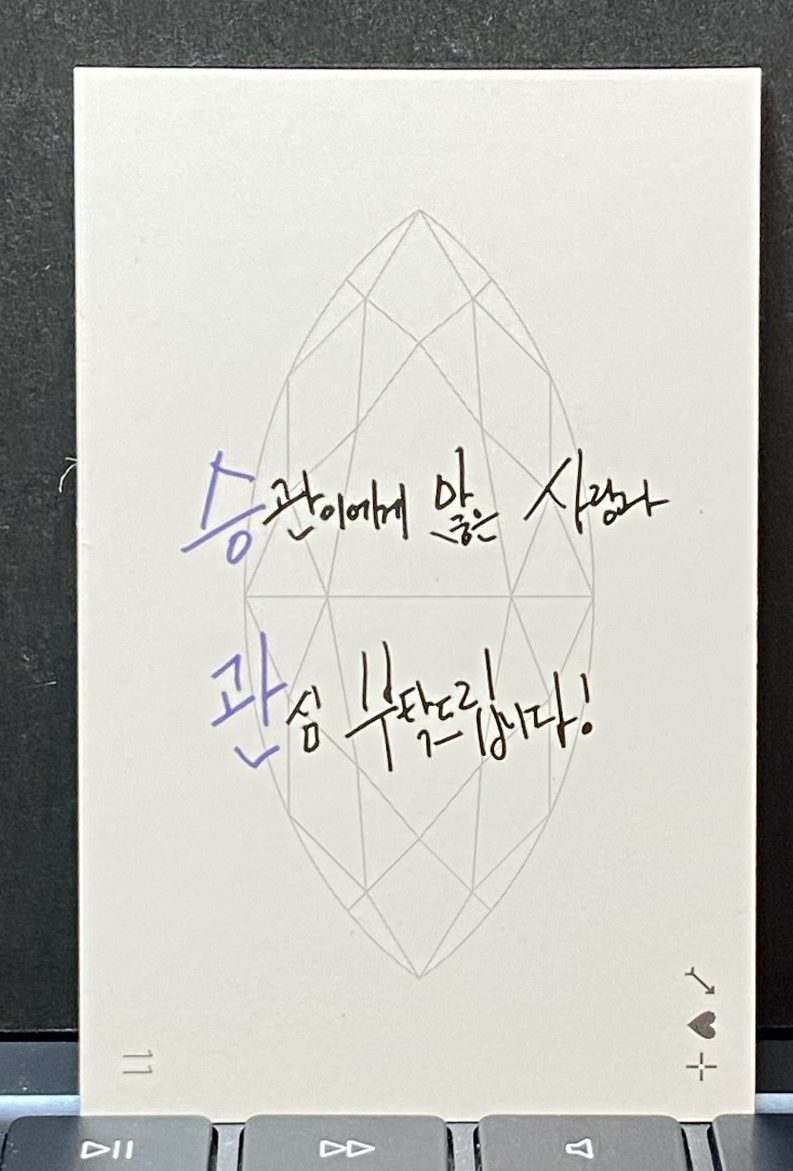 승관이에게 많은 사랑과
관심 부탁드립니다!
11